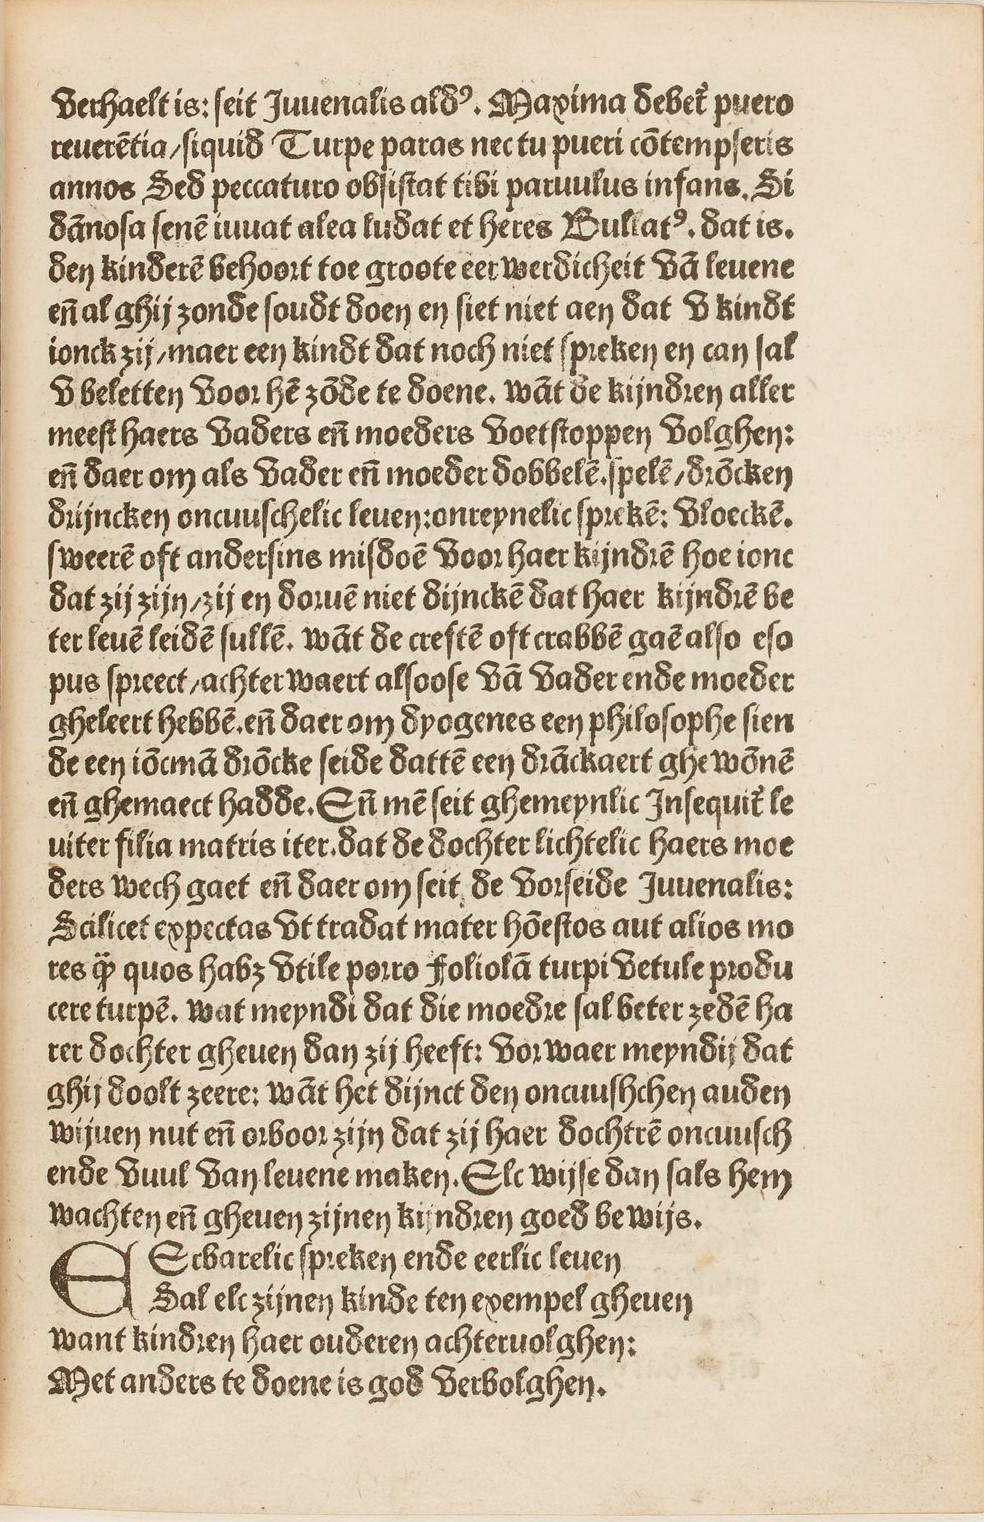 verhaelt is: seit Juuenalis aldꝰ. Maxima debet᷑ puero
reuerētia/siquid Turpe paras nec tu pueri cōtempseris
annos Sed peccaturo obsistat tibi paruulus infans. Si
dānosa senē iuuat alea ludat et heres Bullatꝰ. dat is.
den kinderē behoort toe groote eerwerdicheit vā leuene
eñ al ghij zonde soudt doen en siet niet aen dat v kindt
ionck zij/maer een kindt dat noch niet spreken en can sal
v beletten voor hē zōde te doene. wāt de kijndren aller
meest haers vaders eñ moeders voetstoppen volghen:
eñ daer om als vader eñ moeder dobbelē.spelē/drōcken
drijncken oncuuschelic leuen:onreynelic sprekē: vloeckē.
sweerē oft andersins misdoē voor haer kijndrē hoe ionc
dat zij zijn/zij en doruē niet dijnckē dat haer kijndrē be
ter leuē leidē sullē. wāt de creftē oft crabbē gaē also eso
pus spreect/achterwaert alsoose vā vader ende moeder
gheleert hebbē.eñ daer om dyogenes een philosophe sien
de een iōcmā drōcke seide dattē een drāckaert ghewōnē
eñ ghemaect hadde.Eñ mē seit ghemeynlic Insequit᷑ le
uiter filia matris iter.dat de dochter lichtelic haers moe
ders wech gaet eñ daer om seit de vorseide Juuenalis:
Scilicet expectas vt tradat mater hōestos aut alios mo
res qꝫ̄ quos habꝫ vtile porro foliolā turpi vetule produ
cere turpē. wat meyndi dat die moedre sal beter zedē ha
rer dochter gheuen dan zij heeft: vorwaer meyndij dat
ghij doolt zeere: wāt het dijnct den oncuushchen auden
wijuen nut eñ orboor zijn dat zij haer dochtrē oncuusch
ende vuul van leuene maken.Elc wijse dan sals hem
wachten eñ gheuen zijnen kijndren goed bewijs.
EErbarelic spreken ende eerlic leuen
Sal elc zijnen kinde ten exempel gheuen
want kindren haer ouderen achteruolghen:
Met anders te doene is god verbolghen.